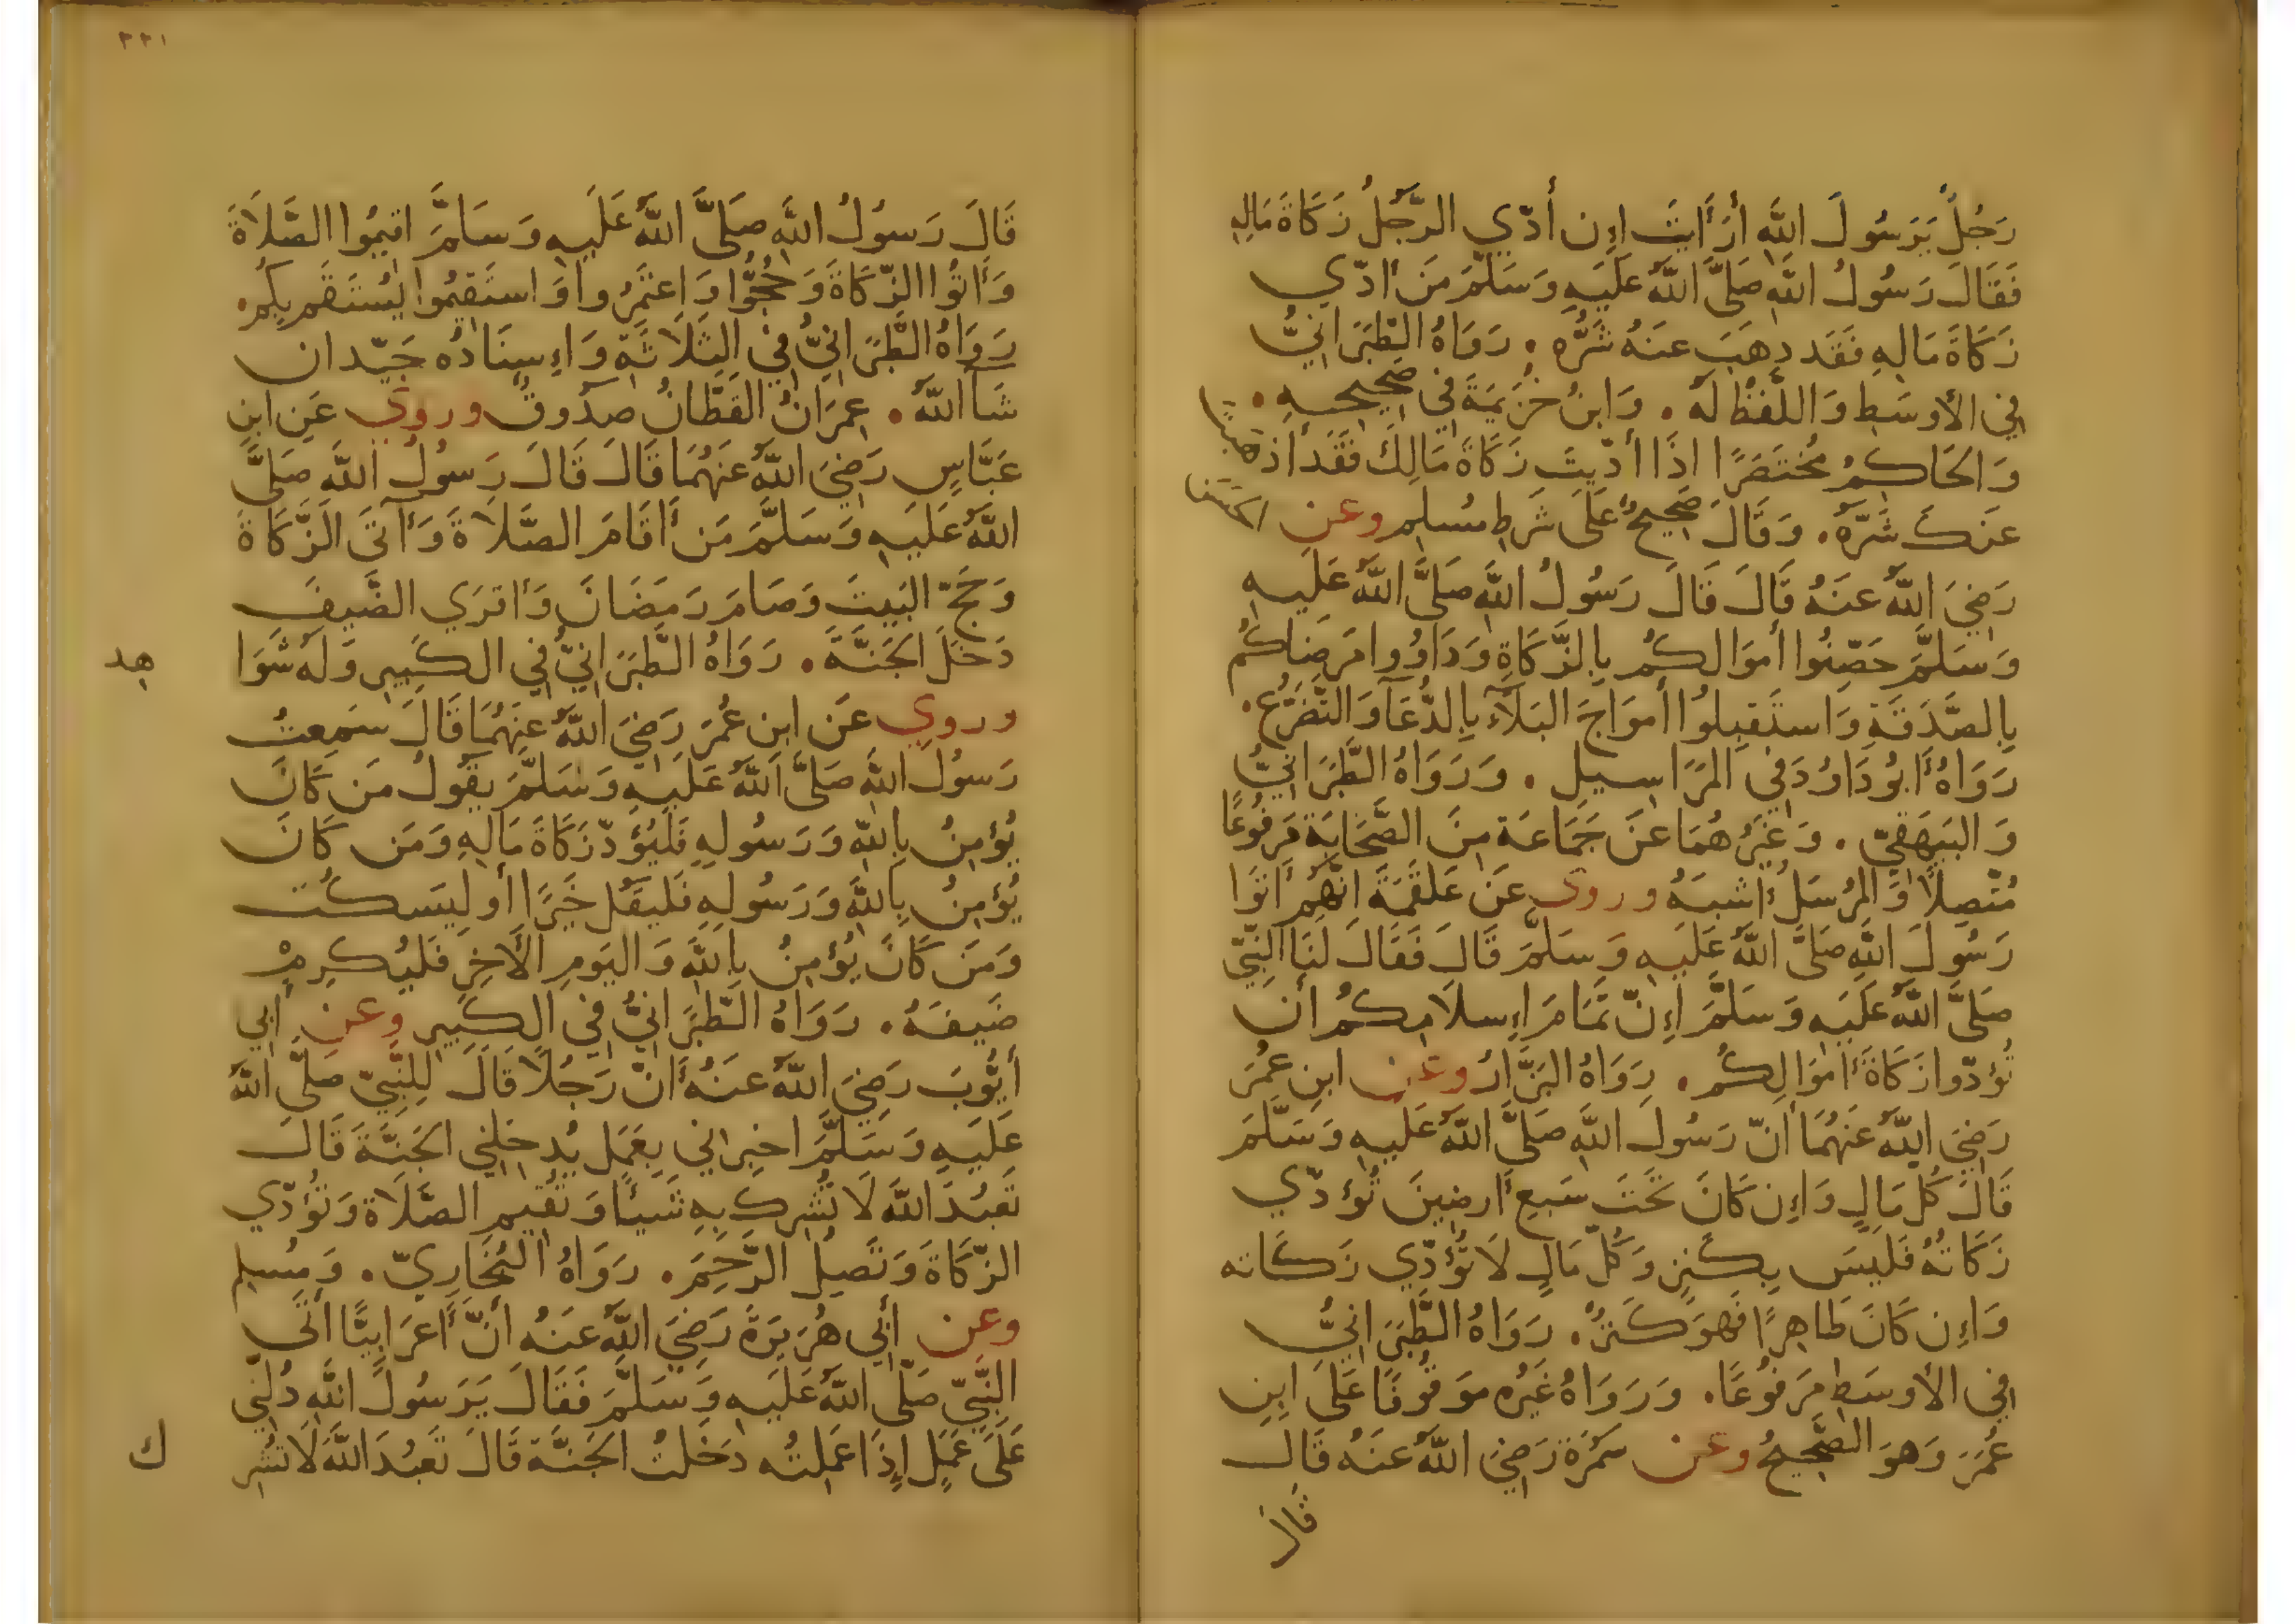 رَجُلٌ يَرَسُولَ اللَّهِ أَرَأَيتَ اِن أدّي الرَّجُلُ زَكَاةَ مَالِهِ
فَقَالَ رَسُولُ اللَّهِ صَلَّى اللَّهُ عَلَيهِ وَسَلَّمَ مَن أدّي
زَكَاةَ مَالِهِ فَقَد ذهَبَ عَنهُ شَرُّه . رَوَاهُ الطَّبَرَانِيُّ
فِي الأوسَطِ وَاللَّفظُ لَهُ . وَابنُ خُزَيمَةَ فِي صَحِيحِهِ .
وَالحَاكِمُ مُختَصَرًا اذَا أدّيتَ زَكَاةَ مَالِكَ فَقَد أذهَبتَ
عَنكَ شَرَّه . وَقَالَ صَحِيحٌ عَلَى شَرطِ مُسلِم وعن الحَسَن
رَضِيَ اللَّهُ عَنهُ قَالَ قَالَ رَسُولُ اللَّهِ صَلَّى اللَّهُ عَلَيهِ
وَسَلَّمَ حَصِّنُوا أموَالَكُم بِالزَّكَاةِ وَدَاوُوا مَرضَاكُم
بِالصَّدَقَةِ وَاستَقبِلُوا أموَاجَ البَلَآءِ بِالدُّعَآ وَالتَّضَرُّعِ .
رَوَاهُ أَبُو دَاوُد فِي المَرَاسِيل . وَرَوَاهُ الطَّبَرَانِيُّ
وَالبَيهَقِيّ . وَغَيرُهُمَا عَن جَمَاعَة مِنَ الصَّحَابَةِ مَرفُوعًا
مُتَّصِلًا وَالمُرسَلُ أشبَهُ وروى عَن عَلقَمَةَ انَّهُم أتَوَا
رَسُولَ اللَّهِ صَلَّى اللَّهُ عَلَيهِ وَسَلَّمَ قَالَ فَقَالَ لَنَا النَّبِيّ
صَلَّى اللَّهُ عَلَيهِ وَسَلَّمَ اِنّ تَمَامَ اِسلَامِكُم أن
تُؤدّوا زَكَاةَ أموَالِكُم . رَوَاهُ البَزَّارُ وعن ابنِ عُمَرَ
رَضِيَ اللَّهُ عَنهُمَا أنّ رَسُولَ اللَّهِ صَلَّى اللَّهُ عَلَيهِ وَسَلَّمَ
قَالَ كُلُّ مَالٍ وَاِن كَانَ تَحتَ سَبعِ أَرضِينَ تُؤدّي
زَكَاتُهُ فَلَيسَ بِكَنزٍ وَكُلُّ مَالٍ لَا تُؤَدّي زَكَاته
وَاِن كَانَ ظَاهِرًا فَهُوَ كَنزٌ . رَوَاهُ الطَّبَرَانِيُّ
فِي الأوسَطِ مَرفُوعًا . وَرَوَاهُ غَيرُه مَوقُوفًا عَلَى ابنِ
عُمَرَ وَهوَ الصَّحِيحُ وعن سَمُرَةَ رَضِيَ اللَّهُ عَنهُ قَالَ
قَالَ
٢٢١
قَالَ رَسُولُ اللَّهِ صَلَّى اللَّهُ عَلَيهِ وَسَلَّمَ اقِيمُوا الصَّلَاةَ
وَأتُوا الزَّكَاةَ وَحُجُّوا وَاعتَمِرُوا وَاستَقِيمُوا يُستَقَم بِكُم .
رَوَاهُ الطَّبَرَانِيُّ فِي الثَلَاثَةِ وَاِسنَادُه جَيّد ان
شَآ اللَّهُ . عِمرَانُ القَطَّانُ صَدُوقٌ وروي عَنِ ابنِ
عَبَّاسٍ رَضِيَ اللَّهُ عَنهُمَا قَالَ قَالَ رَسُولُ اللَّهِ صَلَّى
اللَّهُ عَلَيهِ وَسَلَّمَ مَن أَقَامَ الصَّلَاةَ وَآتَى الزَّكَاةَ
وَحَجّ البَيتَ وَصَامَ رَمَضَانَ وَأقرَي الضَّيفَ
دَخَلَ الجَنَّةَ . رَوَاهُ الطَّبَرَانِيُّ فِي الكَبِيرِ وَلَه شَوَا
هد
وروي عَن ابنِ عُمَرَ رَضِيَ اللَّهُ عَنهُمَا قَالَ سَمِعتُ
رَسُولَ اللَّهِ صَلَّى اللَّهُ عَلَيهِ وَسَلَّمَ يَقُولُ مَن كَانَ
يُؤمِنُ بِاللَّهِ وَرَسُولِهِ فَليُؤَدّ زَكَاةَ مَالِهِ وَمَن كَانَ
يُؤمِنُ بِاللَّهِ وَرَسُولِهِ فَليَقُل خَيرًا أو لِيَسكُت
وَمَن كَانَ يُؤمِنُ بِاللَّهِ وَاليَومِ الأَخِرِ فَليُكرِمْ
ضَيفَهُ . رَوَاهُ الطَّبَرَانِيُّ فِي الكَبِيرِ وعن ابي
أيُّوبَ رَضِيَ اللَّهُ عَنهُ أَنّ رَجُلًا قَالَ لِلنَّبِيّ صَلَّى اللَّهُ
عَلَيهِ وَسَلَّمَ اخبِراني بِعَمَلٍ يُدخِلنِي الجَنَّةَ قَالَ
تَعبُدَ اللَّهَ لَا تُشرِك بِهِ شَيئًا وَتُقِيمِ الصَّلَاةَ وَتُؤدّي
الزَّكَاةَ وَتَصِلُ الرَّحِمَ . رَوَاهُ البُخَارِيّ . وَمُسلِم
وعن أَبِي هُرَيرَةَ رَضِيَ اللَّهُ عَنهُ أنَّ أَعرَابِيًّا أتَى
النَّبِيّ صَلَّى اللَّهُ عَلَيهِ وَسَلَّمَ فَقَالَ يَرَسُولَ اللَّهِ دُلّنِي
عَلَى عَمَلٍ اِذَا عَمِلتُه دَخَلتُ الجَنَّةَ قَالَ تَعبُدَ اللَّهَ لَا تُشرِ
ك